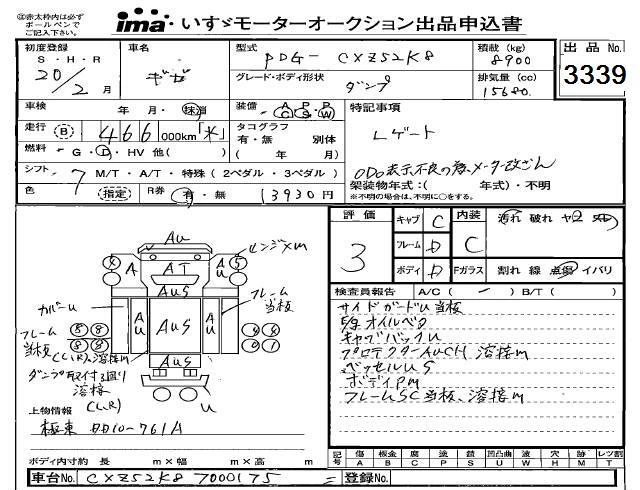 ◎赤太枠内は必ず
ボールペンで
ご記入下さい。
ima いすゞモーターオークション出品申込書
初度登録
S・H・R
20/2月
車名
ギガ
型式
PDG- CXZ52K8
グレード・ボディ形状
ダンプ
積載 (kg)
8900
排気量 (cc)
15680
出品No.
3339
車検 年 月・抹消
走行 B 466 000km「米」
燃料 G・D・HV 他( )
シフト 7 M/T・A/T・特殊(2ペダル・3ペダル)
色 指定 R券 有・無 13930円
装備 A/C P/S P/W
タコグラフ
有・無 別体
( 年 月)
特記事項
Lゲート
ODO表示不良の為メーター改ざん
架装物年式:( 年式)・不明
※不明の場合は、不明に○をする。
評価
3
キャブ C
フレーム D
ボディ D
内装 C
Fガラス
汚れ 破れ ヤニ
割れ 線 点傷 イバリ
検査員報告 A/C ( ー ) B/T ( )
サイドガードU当板
オイルベタ
キャブバックU
プロテクターAUCH 溶接m
ベッセルUS
ボディPm
フレームSC当板、溶接m
Au
レンジメm
A
AT
Au
AuS
カバーu
Au
AuS
Au
フレーム
当板
フレーム
当板
(L,R)溶接m
AuS
ダンプ取付る廻り
溶接
(L,R)
u
上物情報
極東 DD10-761A
ボディ内寸約 長 m×幅 m×高 m
記号 傷 板金 腐 塗 錆 凹凸曲 波 穴 跡 レツ割
A B C P S U W H M T
車台No. CXZ52K8 7000175
登録No.